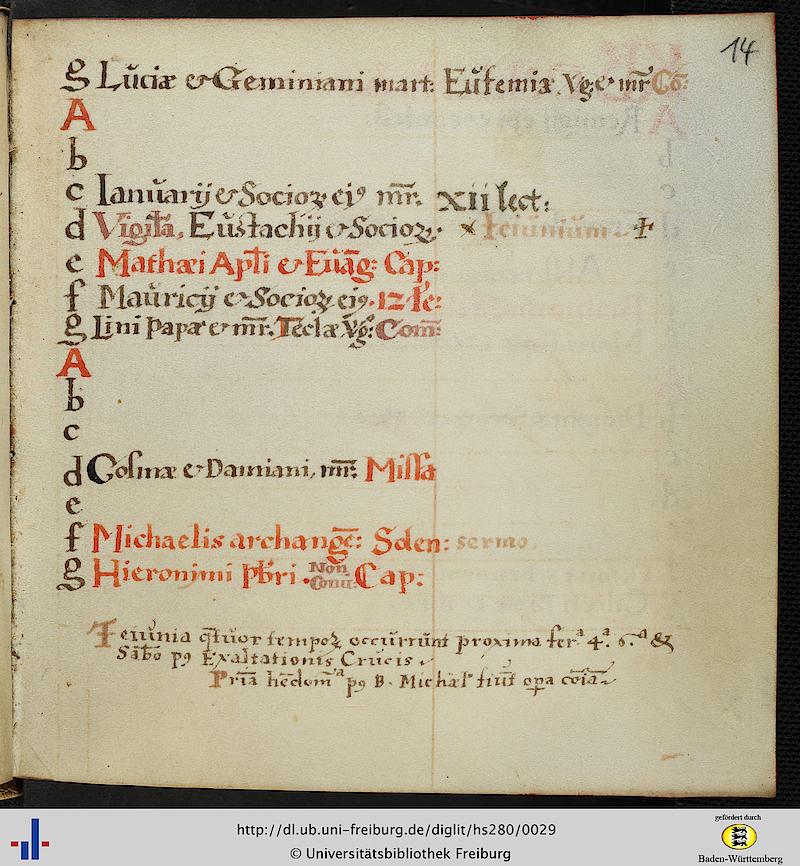 14
g Luciæ & Geminiani mart: Eufemiæ Vg: & mr̄ Cō:
A
b
c Ianuarij & Socioꝝ eiꝰ mr̄. xii lect:
d Vigiľa, Eustachij & Socioꝝ. × Ieiunium ‡
e Mathæi Apľi & Euāg: Cap:
f Mauricij & Socioꝝ eiꝰ. 12 Le:
g Lini Papæ & mr̄. Teclæ Vg: Com̄:
A
b
c
d Cosmæ & Damiani, mr̄: Missa
e
f Michaelis archangē: Solen: sermo.
g Hieronimi pb̄ri. Non Conu: Cap:
Ieiunia q̄tuor tempoꝝ occurrunt proxima ferᵃ 4ᵃ. 6ᵃ &
Sab̄o pꝰ Exaltationis Crucis
Pria hēdomᵃ pꝰ B. Michaľ fiūt opa cōia
http://dl.ub.uni-freiburg.de/diglit/hs280/0029
© Universitätsbibliothek Freiburg
gefördert durch
Baden-Württemberg